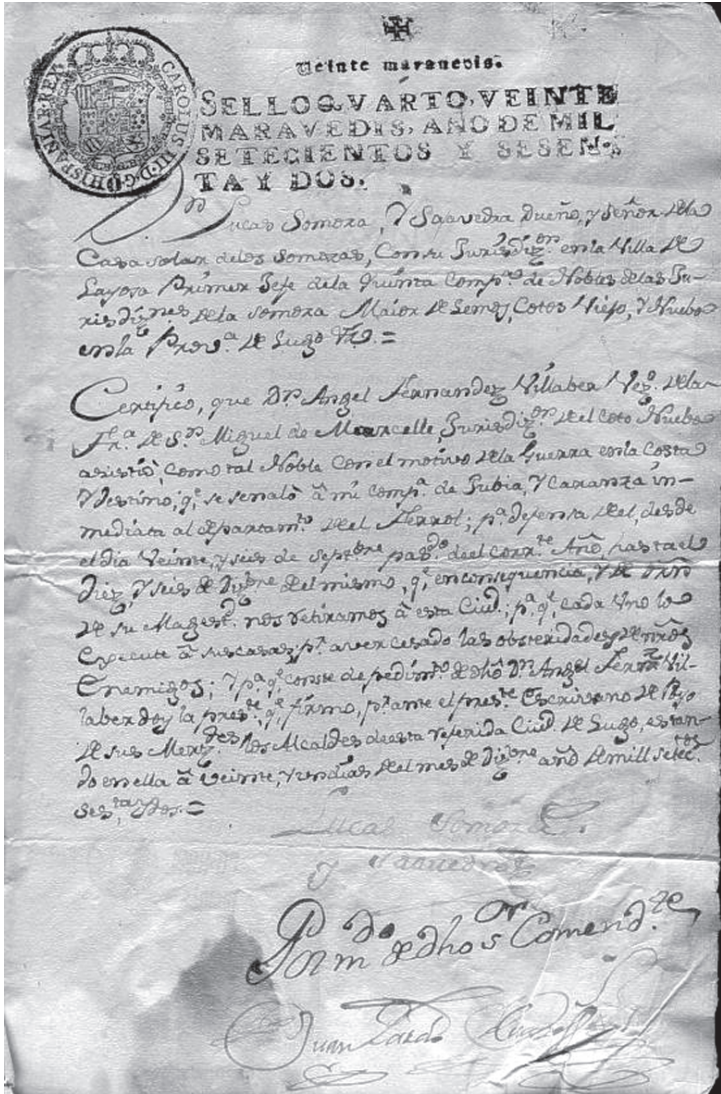 CAROLUS III D G HISPANIAR REX
Veinte maravedis.
SELLO QVARTO, VEINTE
MARAVEDIS, AÑO DE MIL
SETECIENTOS Y SESEN-
TA Y DOS.
Dn Lucas Somoza, Y Saavedra Dueño, y Señor dela
Casa solar delos Somozas, Con su Jurisdizon. en la Villa de
Layosa Primer Jefe dela Quinta Comp.a de Nobles delas Ju-
risdiznes dela Somoza Maior de Lemos, Cotos Viejo, Y Nuebo
en la Prov.a de Lugo =
Certifico, que Dn. Angel Fernandez Villaber Vezo. dela
Fra. de Sn. Miguel de Marcelle, Jurisdizon. del Coto Nuebo
asistió, como tal Noble con el motivo dela Guerra en la Costa
Y destino, qe. se senaló â mi comp.a de Jubia, Y Caranza in-
mediata al departamto. del Ferrol; pa. defensa del, desde
el dia Veinte, y seis de Septbre pasdo. deel corrte. Año, hasta el
Diez, Y seis de Dizbre del mismo, qe. en consequencia, Y de orn
de su Magesd. nos retiramos â esta Ciud.; pa. qe. cada Uno lo
execute â sus casas, pr. aver cesado las obsteridades de nros
Enemigos; Y pa. qe. conste de pedimto. de dho Dn. Angel Fernz Vil-
laber doy la preste. qe. firmo, pr. ante el preste. Escrivano de
de sus Merzdes. los Alcaldes de esta referida Ciud de Lugo, estan-
do en ella â Veinte, y un dias del mes de Dizbre año de mill setectos.
sesta. y dos. =
Lucas Somoza
Y Saavedra
Por mdo de dho sor Comendte
Juan